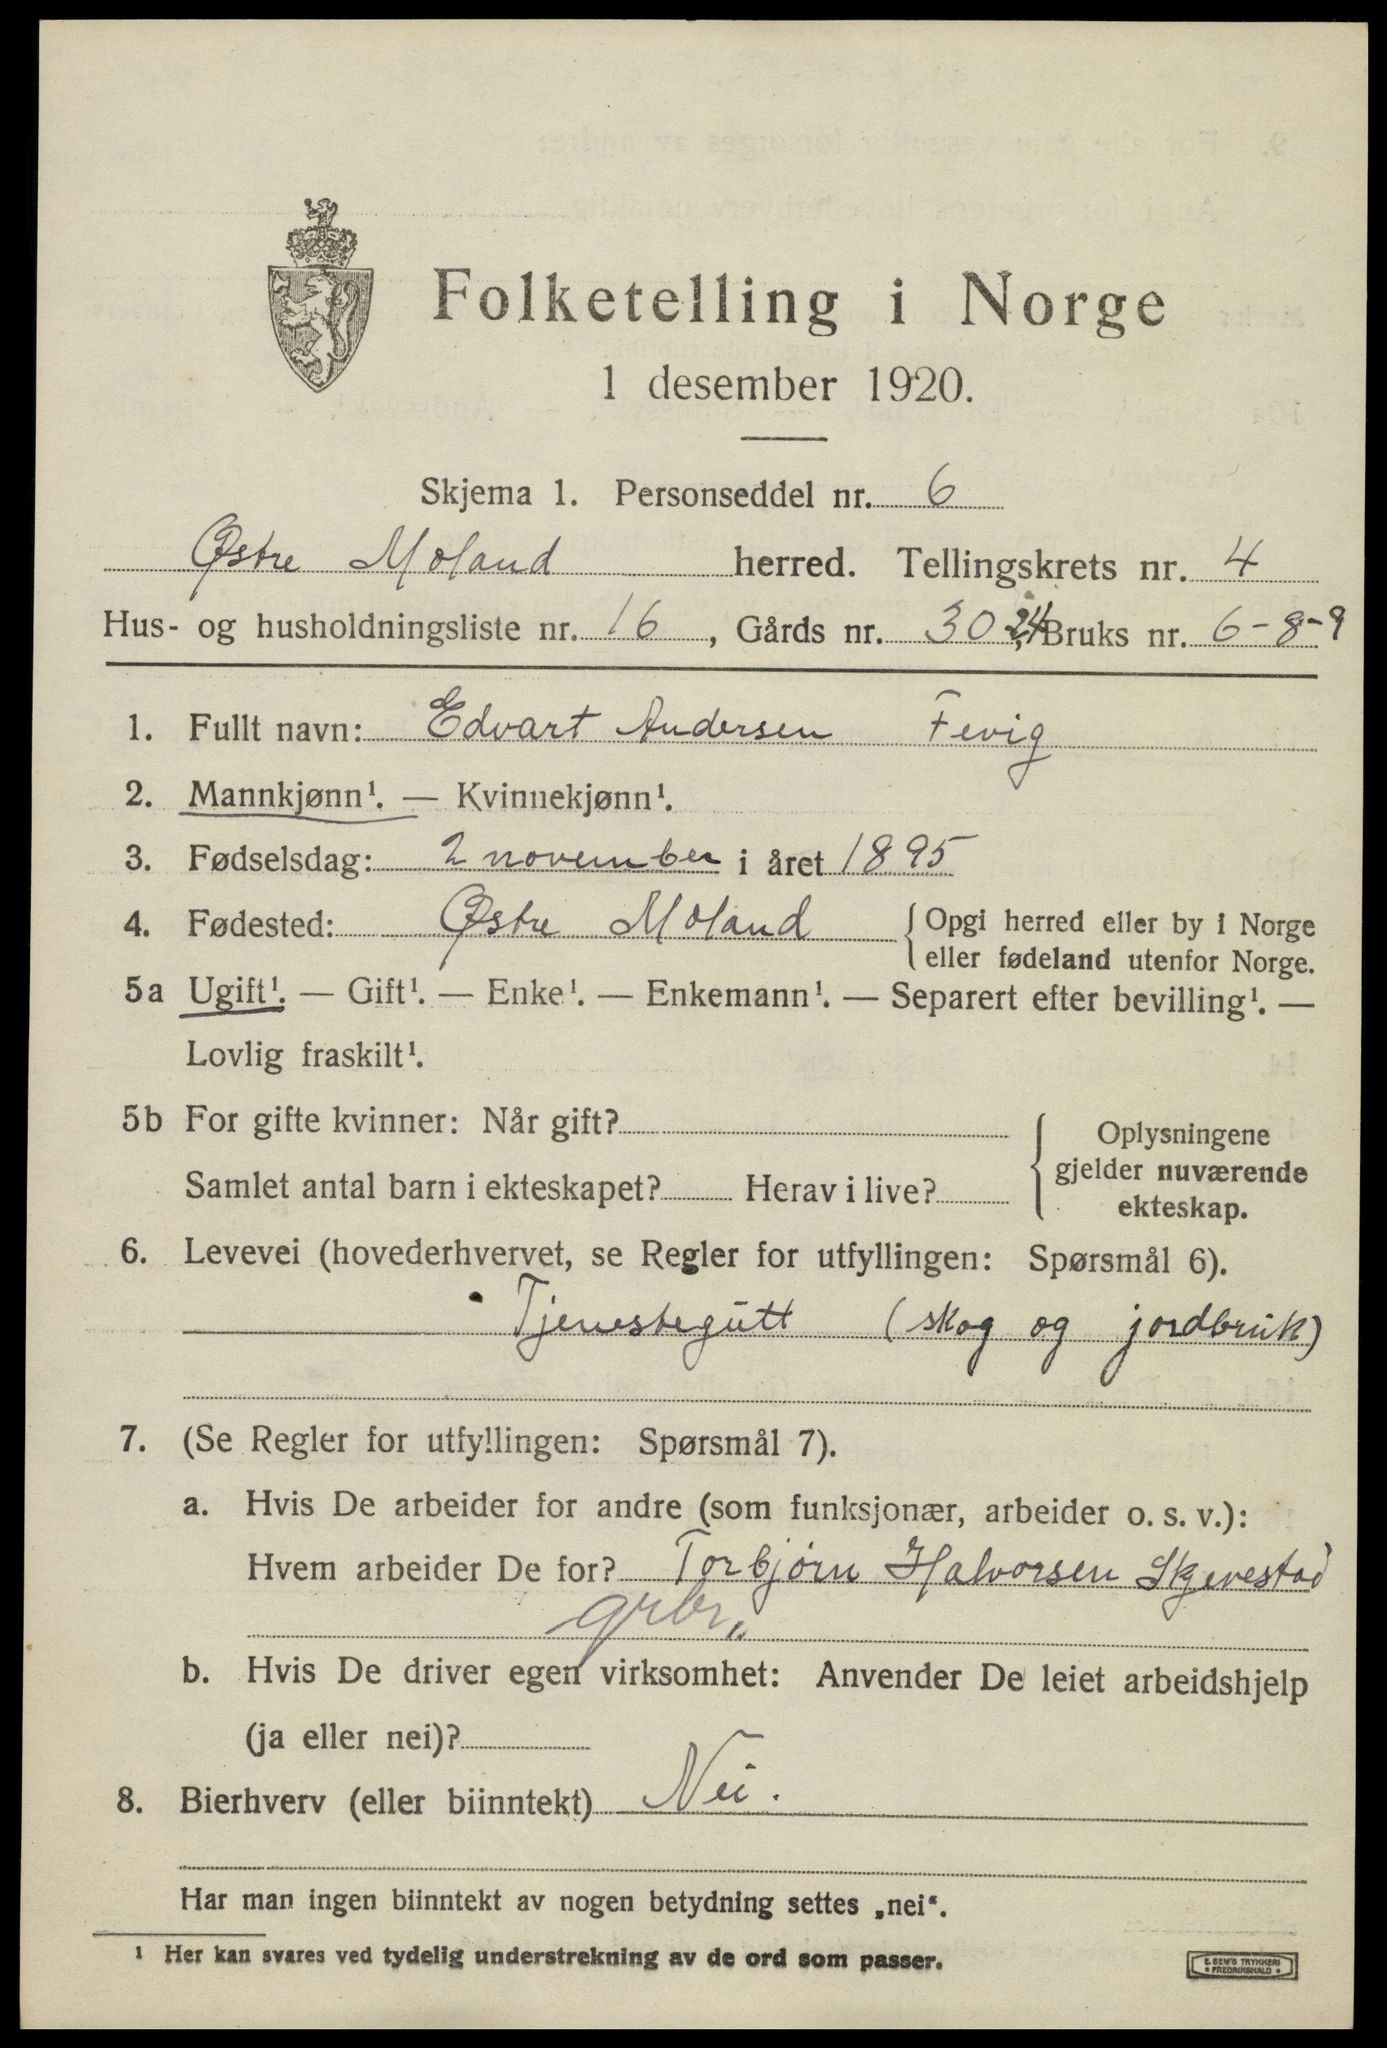 Folketelling i Norge
1 desember 1920.
Skjema 1. Personseddel nr. 6
Østre Moland herred. Tellingskrets nr. 4
Hus- og husholdningsliste nr. 16, Gårds nr. 30, 24 Bruks nr. 6-8-9
1. Fullt navn: Edvart Andersen Fevig
2. Mannkjønn¹. — Kvinnekjønn¹.
3. Fødselsdag: 2 november i året 1895
4. Fødested: Østre Moland { Opgi herred eller by i Norge
eller fødeland utenfor Norge.
5a Ugift¹. — Gift¹. — Enke¹. — Enkemann¹. — Separert efter bevilling¹. —
Lovlig fraskilt¹.
5b For gifte kvinner: Når gift?
Samlet antal barn i ekteskapet? Herav i live?
{ Oplysningene
gjelder nuværende
ekteskap.
6. Levevei (hovederhvervet, se Regler for utfyllingen: Spørsmål 6).
Tjenestegutt (skog og jordbruk)
7. (Se Regler for utfyllingen: Spørsmål 7).
a. Hvis De arbeider for andre (som funksjonær, arbeider o. s. v.):
Hvem arbeider De for? Torbjørn Halvorsen Skjevestad
grbr.
b. Hvis De driver egen virksomhet: Anvender De leiet arbeidshjelp
(ja eller nei)?
8. Bierhverv (eller biinntekt) Nei.
Har man ingen biinntekt av nogen betydning settes „nei“.
¹ Her kan svares ved tydelig understrekning av de ord som passer.
E. SEM'S TRYKKERI
• FREDRIKSHALD •